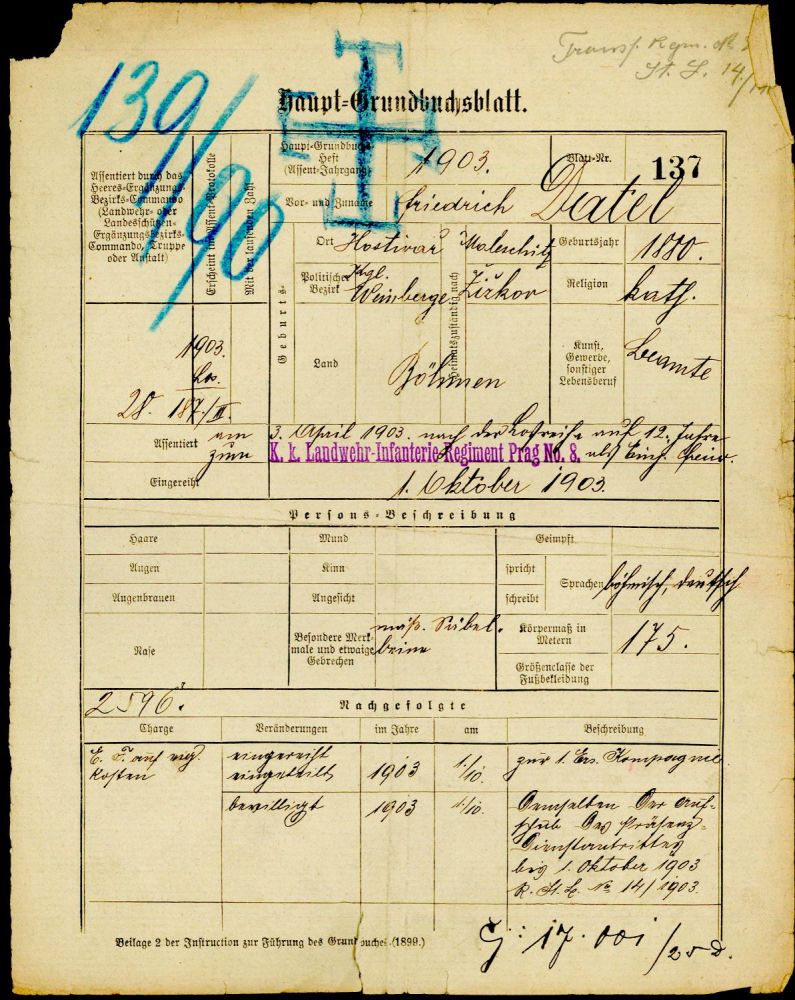 Transf. Rgm. №
St. L. 14/
139/90
Haupt-Grundbuchsblatt.
Assentiert durch das
Heeres-Ergänzungs-
Bezirks-Commando
(Landwehr- oder
Landesschützen-
Ergänzungsbezirks-
Commando, Truppe
oder Anstalt)
Erscheint im Assent-Protokolle
Mit der laufenden Zahl
Haupt-Grundbuchs-
Heft
(Assent-Jahrgang)
1903.
Blatt-Nr.
137
Vor- und Zuname
Friedrich Datel
Geburts-
Ort
Hostivař
Heimatszuständig nach
Maleschitz
Geburtsjahr
1880.
Politischer
Bezirk
Kgl.
Weinberge
Žižkov
Religion
kath.
Land
Böhmen
Kunst,
Gewerbe,
sonstiger
Lebensberuf
Beamte
1903.
Los.
28. 187./II.
Assentiert am 3. April 1903. nach der Losreihe auf 12. Jahre
zum K. k. Landwehr-Infanterie-Regiment Prag No. 8. als Einj. Freiw.
Eingereiht
1. Oktober 1903.
Persons-Beschreibung
Haare
Mund
Geimpft
Augen
Kinn
spricht
Sprachen
böhmisch, deutsch
Augenbrauen
Angesicht
schreibt
Nase
Besondere Merk-
male und etwaige
Gebrechen
mäß. Säbel-
beine
Körpermaß in
Metern
175.
Größenclasse der
Fußbekleidung
2596.
Nachgefolgte
Charge
Veränderungen
im Jahre
am
Beschreibung
E. F. auf eig.
Kosten
eingereiht
eingeteilt
1903
1./10.
zur 1. Ers. Kompagnie
bewilligt
1903
1/10.
Demselben der Auf-
schub des Präsenz-
Dienstantrittes
bis 1. Oktober 1903
R. St. L. № 14/1903.
Beilage 2 der Instruction zur Führung des Grundbuches (1899.)
G: 17.001/25 D.